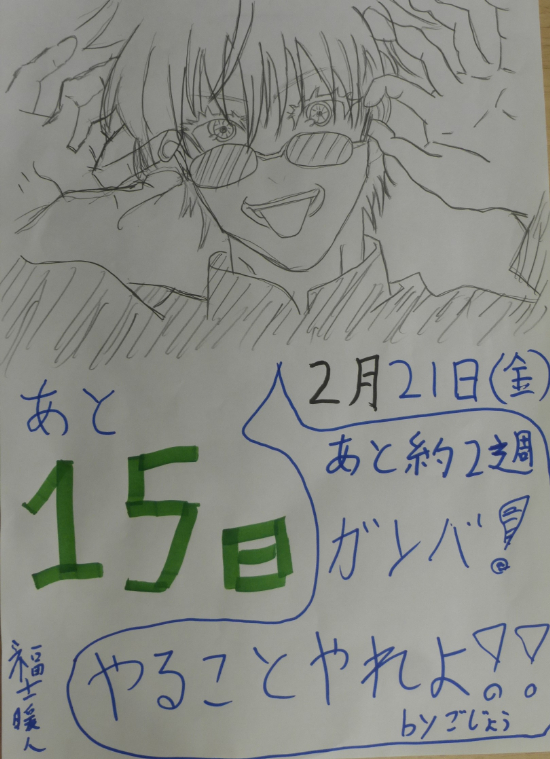 2月21日(金)
あと
15日
あと約2週
ガンバ!
やることやれよ!!
byごじょう
福士暖人